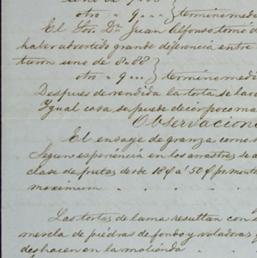 otro " 9... } termino medi
El Sor. Dr. Juan Alfonso tomo d
haber advertido grande diferencia entre
tieron uno de 8.88
otro " 9... } termino medi
Despues de vendida la torta se la
Ygual cosa se puede decir poco ma
Observacione
El ensaye de granza come
Segun esperiencia en los arrastres se a
clase de frutos desde 18 á 50 ps. mont
maximum
Las tortas de lama resultan con
mezcla de piedras de fondo y voladoras q
deshacen en la molienda